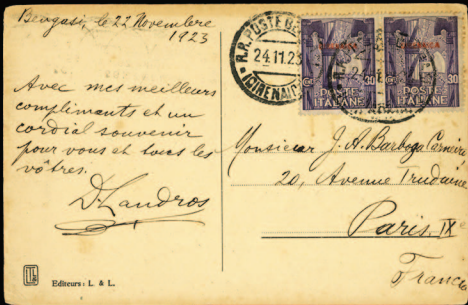 Bengasi, le 22 Novembre
1923
Avec mes meilleurs
compliments et un
cordial souvenir
pour vous et tous les
vôtres.
D. Landros
Editeurs: L. & L.
R.R. POSTE
24.11.23
(CIRENAICA)
30
POSTE
ITALIANE
30
POSTE
ITALIANE
Monsieur J. A. Barboza Carneiro,
20, Avenue Trudaine
Paris. IXe
France